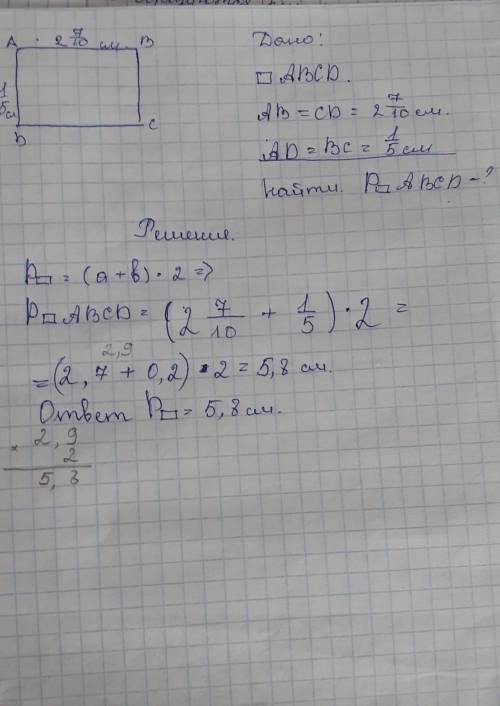 A 2 7/10 см. B
1
5 см
D C
Дано:
□ ABCD.
AB = CD = 2 7/10 см.
AD = BC = 1/5 см
Найти. P□ ABCD - ?
Решение.
P□ = (a + b) · 2 =>
P□ ABCD = (2 7/10 + 1/5) · 2 =
2,9
= (2,7 + 0,2) · 2 = 5,8 см.
Ответ P□ = 5,8 см.
× 2,9
2
5,8